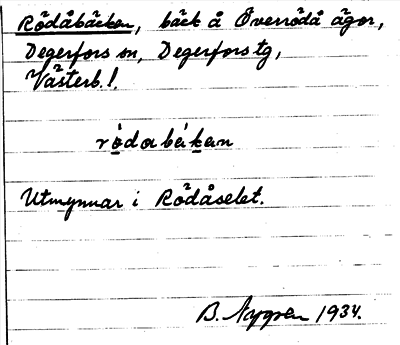 Rödåbäcken, bäck å Överrödå ägor,
Degerfors sn, Degerfors tg,
Västerb. l.
rödabäkan
Utmynnar i Rödåselet.
B. Nygren 1934.